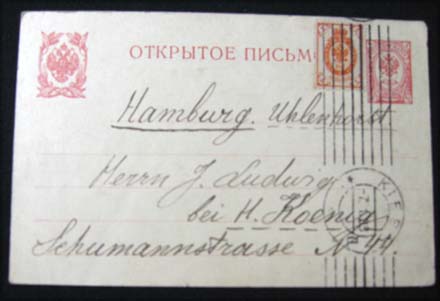 ОТКРЫТОЕ ПИСЬМО
Hamburg. Uhlenhorst.
Herrn J. Ludwig
bei H. Koenig
Schumannstrasse N 44.